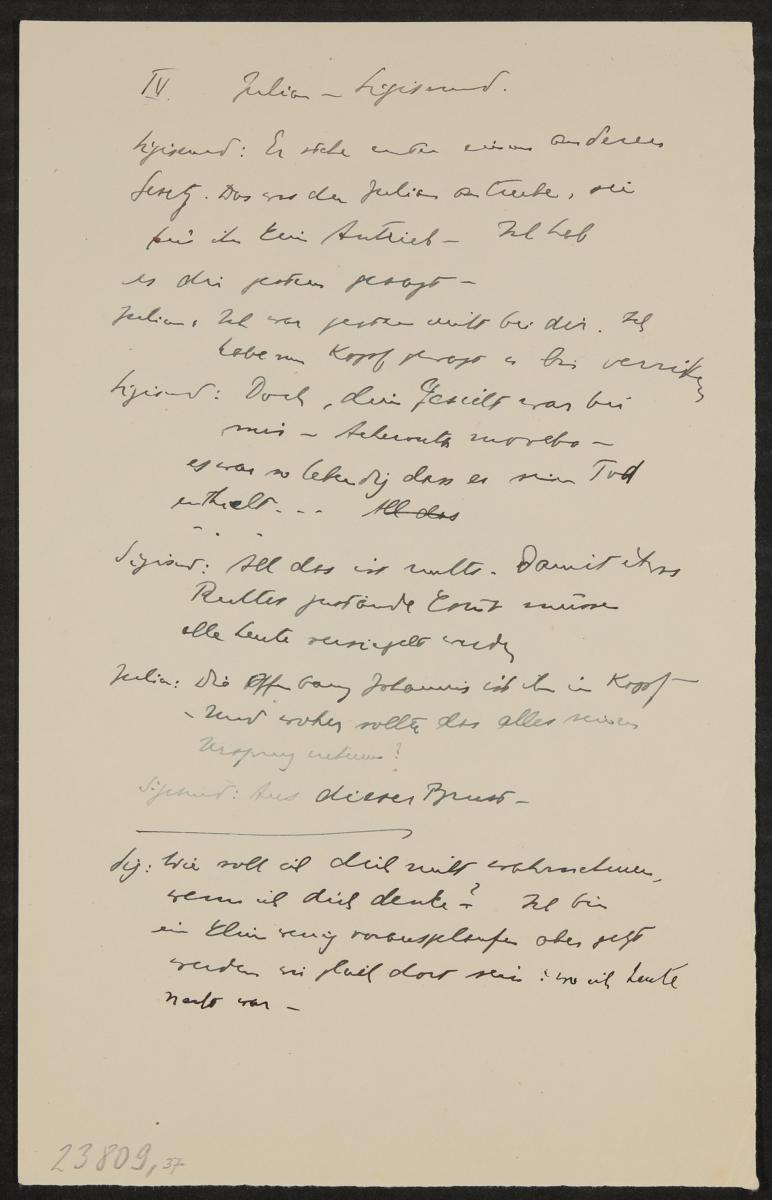 IV. Julian – Sigismund.
Sigismund: Er stehe unter einem anderen
Gesetz. Das was den Julian antreibe, sei
für ihn kein Antrieb – Ich hab
es dir gestern gesagt –
Julian: Ich war gestern nicht bei dir. Ich
habe im Kopf
Sigismund: Doch, dein Gesicht war bei
mir – Acheronta movebo –
es war so lebendig dass es seinen Tod
enthielt... All das
Sigism: All das ist nichts. Damit etwas
Rechtes zustande kommt müssen
alle Leute versiegelt werden
Julian: Die Offenbarung Johannis ist ihm im Kopf –
– Und woher sollte das alles seinen
Ursprung nehmen?
Sigismund: Aus dieser Brust –
Sig: Wie soll ich dich nicht wahrnehmen,
wenn ich dich denke? – Ich bin
ein klein wenig vorausgelaufen aber jetzt
werden wir gleich dort sein: wo ich heute
Nacht war –
23809,37